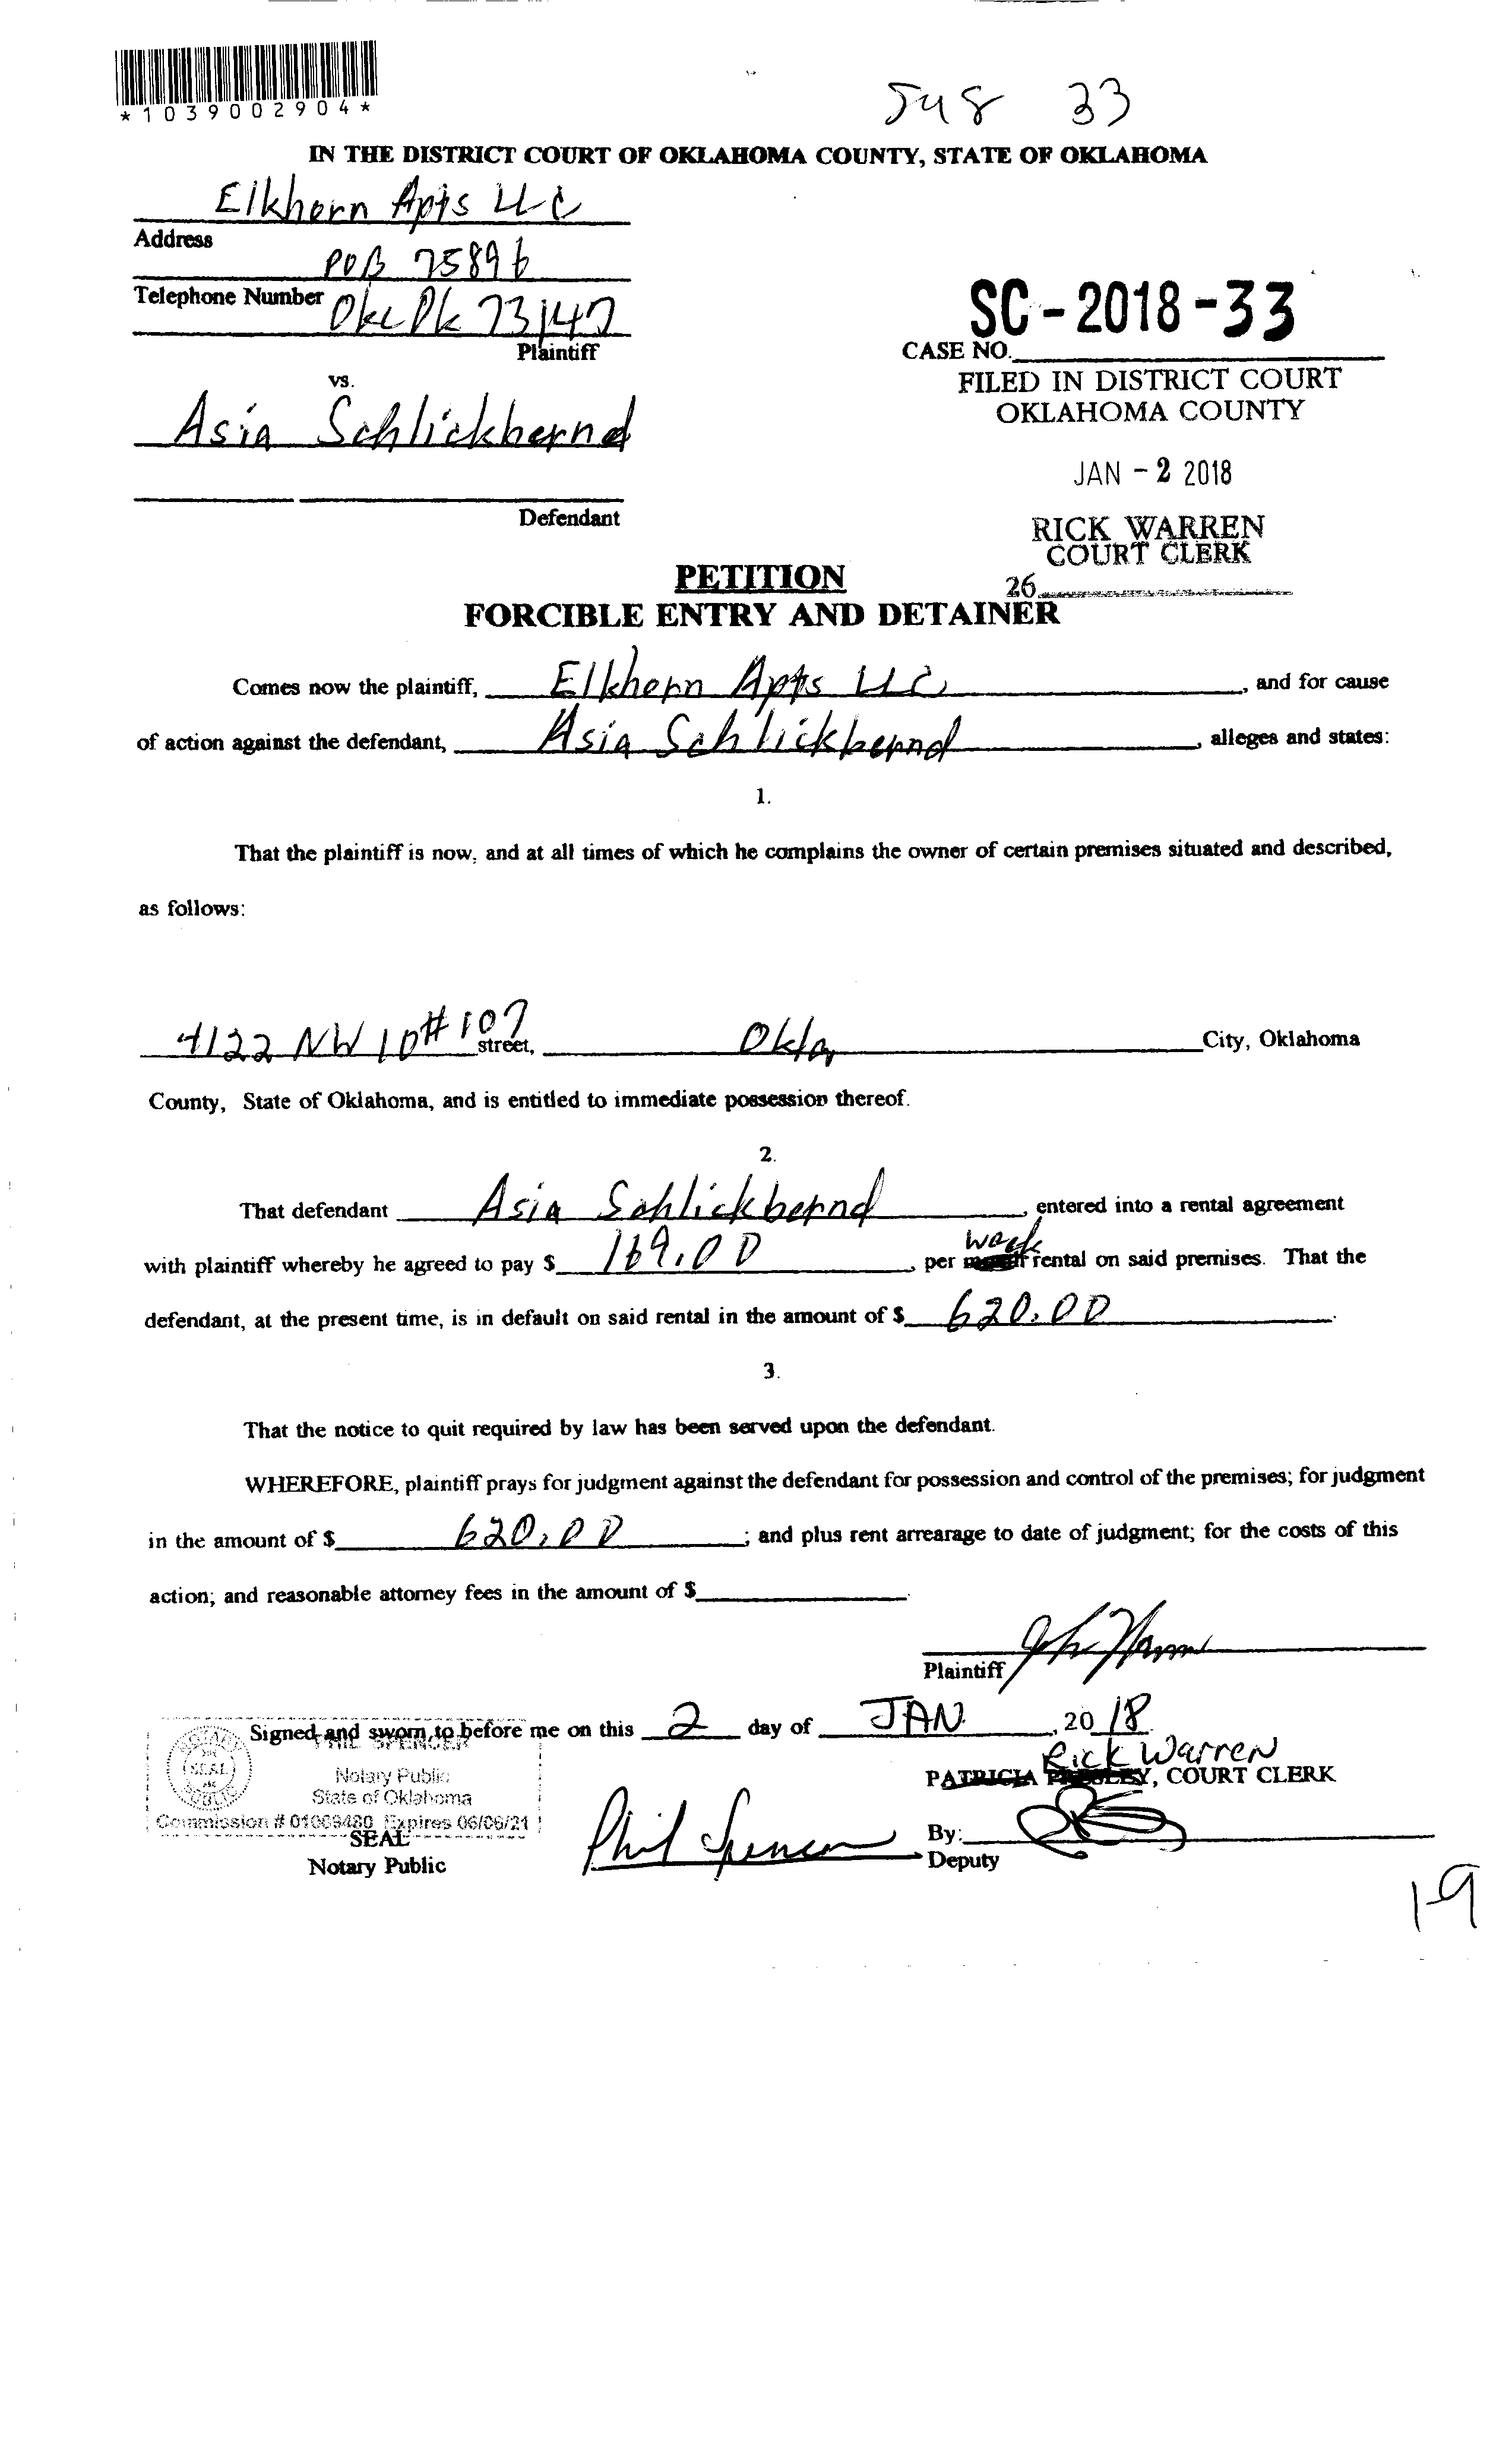 *1039002904*
548 33
IN THE DISTRICT COURT OF OKLAHOMA COUNTY, STATE OF OKLAHOMA
Elkhorn Apts LLC
Address
POB 75896
Telephone Number Okc Ok 73147
Plaintiff
SC-2018-33
CASE NO.
vs.
FILED IN DISTRICT COURT
OKLAHOMA COUNTY
Asia Schlickbernd
JAN - 2 2018
Defendant
RICK WARREN
COURT CLERK
26
PETITION
FORCIBLE ENTRY AND DETAINER
Comes now the plaintiff, Elkhorn Apts LLC, and for cause
of action against the defendant, Asia Schlickbernd, alleges and states:
1.
That the plaintiff is now, and at all times of which he complains the owner of certain premises situated and described,
as follows:
4122 NW 10 #107 street, Okla City, Oklahoma
County, State of Oklahoma, and is entitled to immediate possession thereof.
2.
That defendant Asia Schlickbernd, entered into a rental agreement
with plaintiff whereby he agreed to pay $ 169.00, per week rental on said premises. That the
defendant, at the present time, is in default on said rental in the amount of $ 620.00.
3.
That the notice to quit required by law has been served upon the defendant.
WHEREFORE, plaintiff prays for judgment against the defendant for possession and control of the premises; for judgment
in the amount of $ 620.00; and plus rent arrearage to date of judgment; for the costs of this
action; and reasonable attorney fees in the amount of $.
Plaintiff
Signed and sworn to before me on this 2 day of JAN, 2018.
PHIL SPENCER
Notary Public
State of Oklahoma
Commission # 01009480 Expires 06/06/21
SEAL
Notary Public
Phil Spencer
Rick Warren
PATRICIA PRESLEY, COURT CLERK
By:
Deputy
1-9